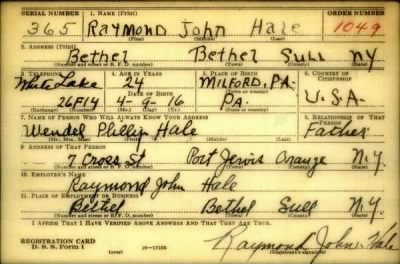 SERIAL NUMBER 1. NAME (Print) ORDER NUMBER
365 Raymond John Hale 1049
(First) (Middle) (Last)
2. ADDRESS (Print)
Bethel Bethel Sull NY
(Number and street or R. F. D. number) (Town) (County) (State)
3. TELEPHONE 4. AGE IN YEARS 5. PLACE OF BIRTH 6. COUNTRY OF CITIZENSHIP
White Lake 24 MILFORD, PA.
DATE OF BIRTH
26F14 4-9-16 PA. U.S.A.
7. NAME OF PERSON WHO WILL ALWAYS KNOW YOUR ADDRESS 8. RELATIONSHIP OF THAT PERSON
Wendel Phillip Hale Father
(Mr., Mrs., Miss) (First) (Middle) (Last)
9. ADDRESS OF THAT PERSON
7 Cross St Port Jervis Orange N.Y.
(Number and street or R. F. D. number) (Town) (County) (State)
10. EMPLOYER'S NAME
Raymond John Hale
11. PLACE OF EMPLOYMENT OR BUSINESS
Bethel Bethel Sull N.Y.
(Number and street or R. F. D. number) (Town) (County) (State)
I AFFIRM THAT I HAVE VERIFIED ABOVE ANSWERS AND THAT THEY ARE TRUE.
REGISTRATION CARD
D. S. S. Form 1 (over) 16-17105 Raymond John Hale
(Registrant's signature)